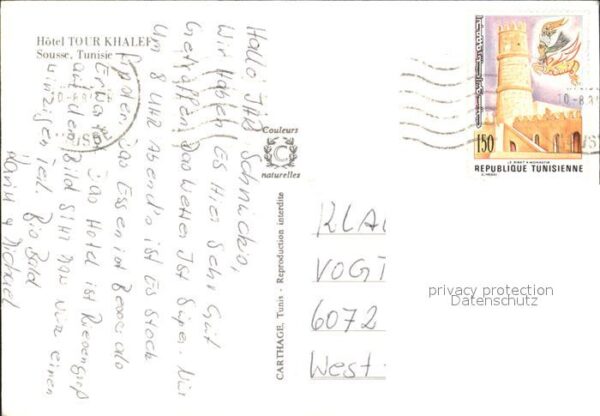 Hôtel TOUR KHALEF
Sousse, Tunisie
Hallo Ihr Schnuckis,
Wir Haben Es Hier Sehr Gut
Getroffen Das Wetter Ist Super. Nur
Um 8 UHR Abend's ist Es Stock
Das Essen ist Besser als
Erwartet Das Hotel ist Riesengroß
auf dem Bild Siht Man Nur einen
winzigen Teil. Bis Bald
Michael
Couleurs
C
naturelles
CARTHAGE, Tunis - Reproduction interdite
150
LE RIBAT - MONASTIR
REPUBLIQUE TUNISIENNE
10-8.8
KLA
VOGT
6072
West-
privacy protection
Datenschutz